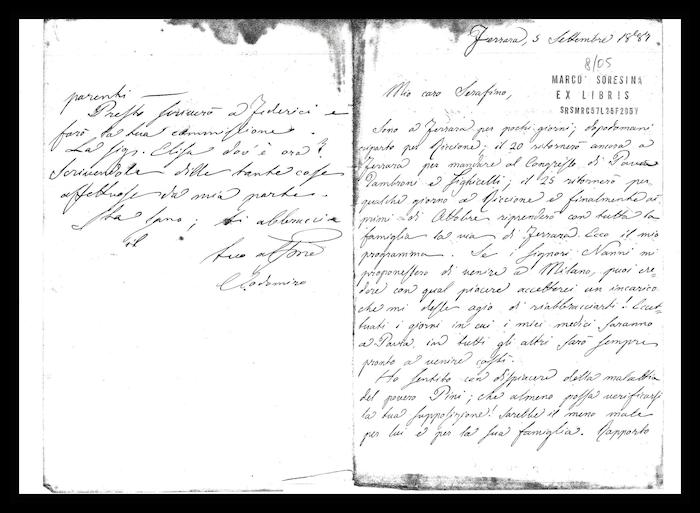 Ferrara, 5 Settembre 1884
8/05
MARCO SORESINA
EX LIBRIS
SRSMRC57L25F205V
Mio caro Serafino,
Sono a Ferrara per pochi giorni; dopodomani
riparto per Riccione; il 20 ritornerò ancora a
Ferrara per mandare al Congresso di Pavia
Tambroni e Sighicelli; il 25 ritornerò per
qualche giorno a Riccione e finalmente ai
primi di Ottobre riprenderò con tutta la
famiglia la via di Ferrara. Ecco il mio
programma. Se i Signori Nanni mi
proponessero di venire a Milano, puoi cre-
dere con qual piacere accetterei un incarico
che mi desse agio di riabbracciarti! Eccet-
tuati i giorni in cui i miei medici saranno
a Pavia, in tutti gli altri sarò sempre
pronto a venire costì.
Ho sentito con dispiacere della malattia
del povero Pini; che almeno possa verificarsi
la tua supposizione! Sarebbe il meno male
per lui e per la sua famiglia. Rapporto
parenti
Presto scriverò a Federici e
farò la tua commissione.
La Sig. Elisa dov'è ora?
Scrivendole dille tante cose
affettuose da mia parte.
Sta sano; ti abbraccia
il
tuo aff
Clodomiro